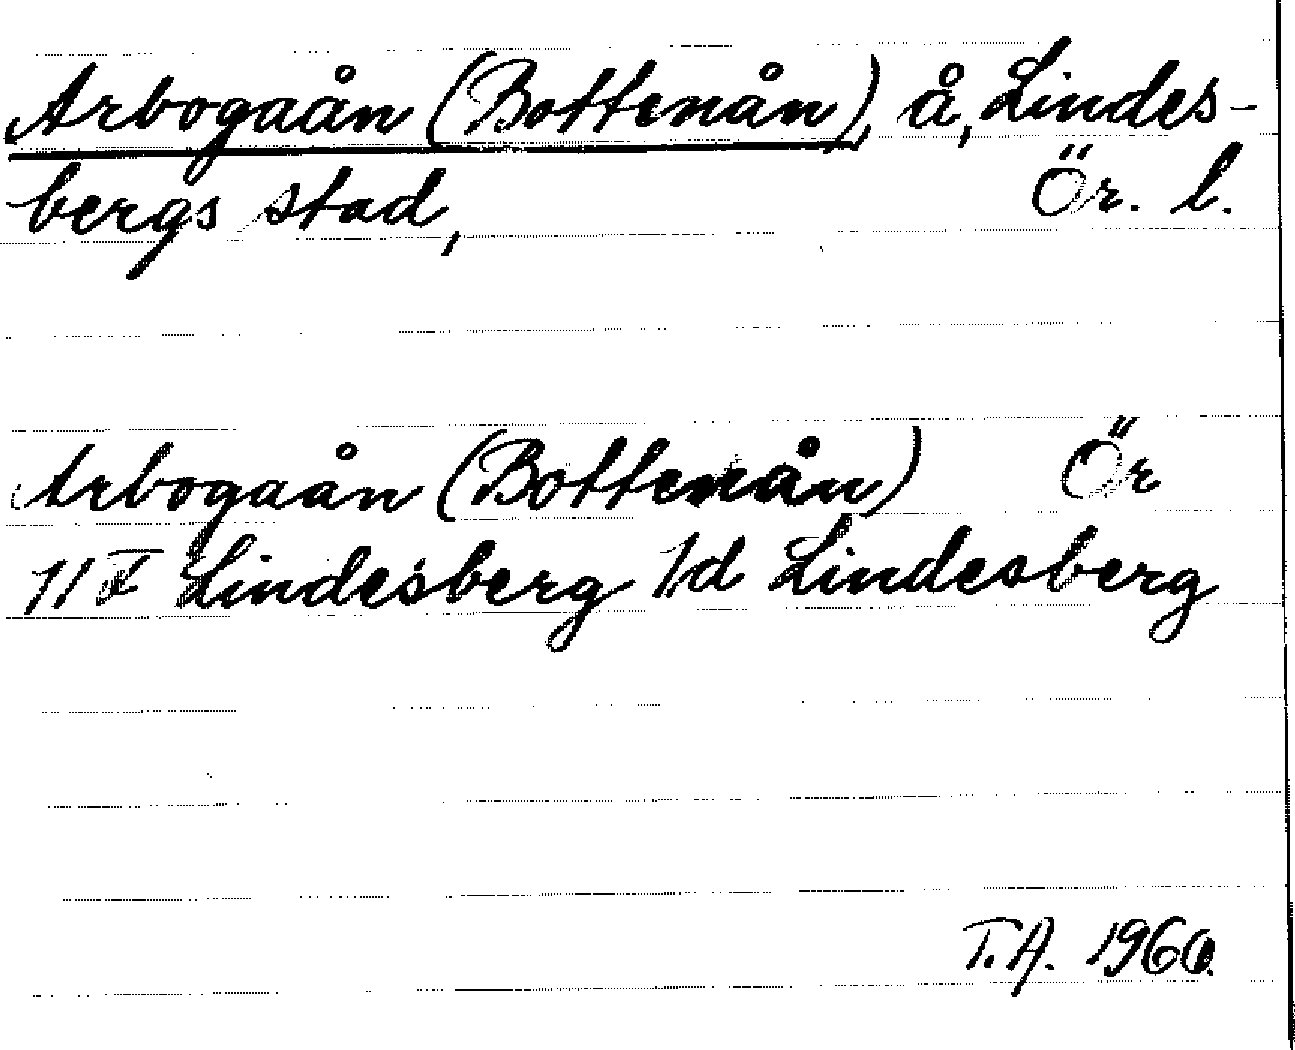 Arbogaån (Bottenån), å, Lindes-
bergs stad, Ör. l.
Arbogaån (Bottenån) Ör
11F Lindesberg 1/d Lindesberg
T.A. 1960.